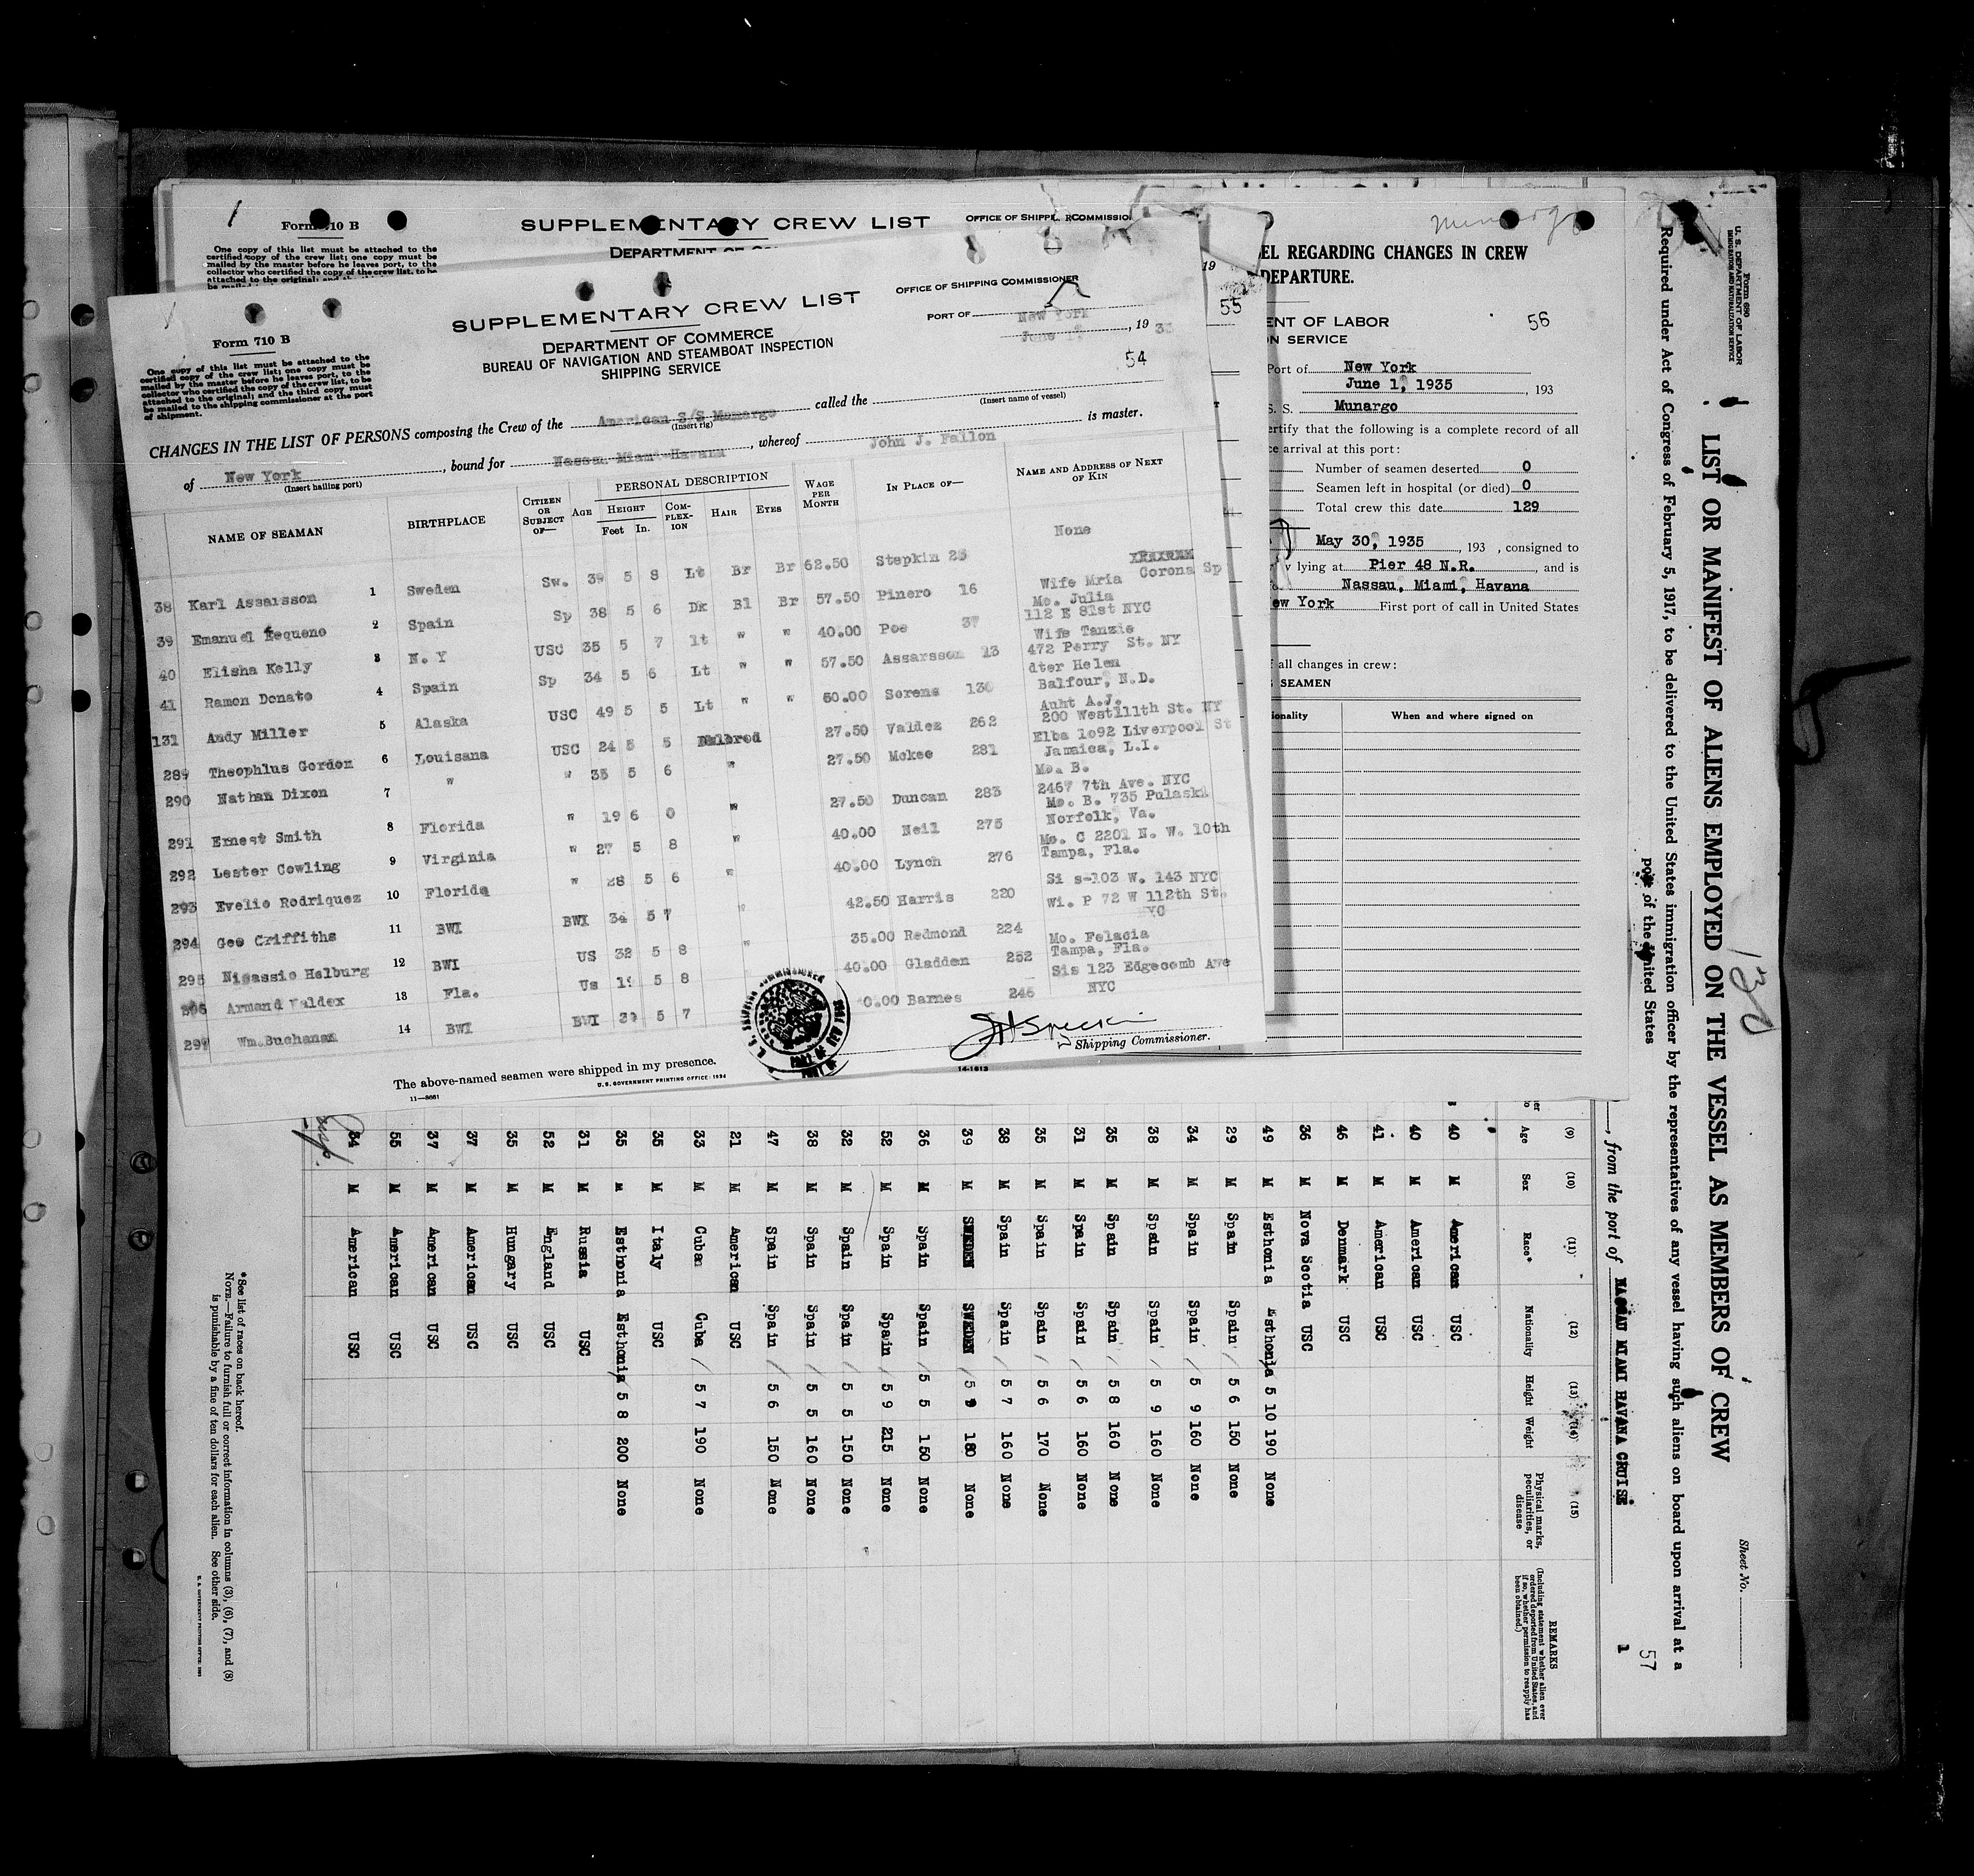 1
Form 710 B
SUPPLEMENTARY CREW LIST
One copy of this list must be attached to the
certified copy of the crew list; one copy must be
mailed by the master before he leaves port, to the
collector who certified the copy of the crew list, to be
attached to the original;
19
55
Form 710 B
One copy of this list must be attached to the
certified copy of the crew list; one copy must be
mailed by the master before he leaves port, to the
collector who certified the copy of the crew list, to be
attached to the original; and the third copy must
be mailed to the shipping commissioner at the port
of shipment.
SUPPLEMENTARY CREW LIST
DEPARTMENT OF COMMERCE
BUREAU OF NAVIGATION AND STEAMBOAT INSPECTION
SHIPPING SERVICE
OFFICE OF SHIPPING COMMISSIONER
PORT OF New York
June 1, 19 35
54
CHANGES IN THE LIST OF PERSONS composing the Crew of the American S/S Munargo called the
(Insert rig) (Insert name of vessel)
of New York, bound for Nassau Miami Havana, whereof John J. Fallon is master.
(Insert hailing port)
NAME OF SEAMAN BIRTHPLACE CITIZEN OR SUBJECT OF— AGE PERSONAL DESCRIPTION HEIGHT Feet In. COMPLEXION HAIR EYES WAGE PER MONTH IN PLACE OF— NAME AND ADDRESS OF NEXT OF KIN
38 Karl Assarsson 1 Sweden Sw. 39 5 8 Lt Br Br 62.50 Stepkin 25 None
39 Emanuel Requeno 2 Spain Sp 38 5 6 Dk Bl Br 57.50 Pinero 16 Wife Mria Corona Sp
40 Elisha Kelly 3 N. Y USC 35 5 7 lt " " 40.00 Poe 37 Mo. Julia 112 E 81st NYC
41 Ramon Donato 4 Spain Sp 34 5 6 Lt " " 57.50 Assarsson 13 Wife Tanzie 472 Perry St. NY
131 Andy Miller 5 Alaska USC 49 5 5 Lt " " 60.00 Sorens 130 dter Helen Balfour, N.D.
289 Theophlus Gordon 6 Louisana USC 24 5 5 27.50 Valdez 262 Auht A.J. 200 West 111th St. NY
290 Nathan Dixon 7 " " 35 5 6 " 27.50 Mckee 281 Elba 1o92 Liverpool St Jamaica, L.I.
291 Ernest Smith 8 Florida " 19 6 0 " 27.50 Duncan 283 Mo. B. 2467 7th Ave. NYC
292 Lester Cowling 9 Virginia " 27 5 8 " 40.00 Neil 275 Mo. B. 735 Pulaski Norfolk, Va.
293 Evelio Rodriquez 10 Florida " 28 5 6 " 40.00 Lynch 276 Mo. C 2201 N. W. 10th Tampa, Fla.
294 Geo Griffiths 11 BWI BWI 34 5 7 " 42.50 Harris 220 Si s-103 W. 143 NYC
295 Nigassio Halburg 12 BWI US 32 5 8 " 35.00 Redmond 224 Wi. P 72 W 112th St. NYC
296 Armand Valdex 13 Fla. Us 19 5 8 40.00 Gladden 252 Mo. Felacia Tampa, Fla.
297 Wm.Buchanan 14 BWI BWI 39 5 7 40.00 Barnes 246 Sis 123 Edgecomb Ave NYC
The above-named seamen were shipped in my presence.
Shipping Commissioner.
U.S. GOVERNMENT PRINTING OFFICE: 1934
11—8661
14-1613
Munargo
EL REGARDING CHANGES IN CREW
DEPARTURE.
ENT OF LABOR
N SERVICE
56
Port of New York
June 1, 1935, 193
S. S. Munargo
ertify that the following is a complete record of all
ce arrival at this port:
Number of seamen deserted 0
Seamen left in hospital (or died) 0
Total crew this date 129
May 30, 1935, 193 , consigned to
lying at Pier 48 N.R. , and is
Nassau, Miami, Havana
ew York First port of call in United States
f all changes in crew:
SEAMEN
ionality When and where signed on
Form 680
U. S. DEPARTMENT OF LABOR
IMMIGRATION AND NATURALIZATION SERVICE
Sheet No.
LIST OR MANIFEST OF ALIENS EMPLOYED ON THE VESSEL AS MEMBERS OF CREW
130
Required under Act of Congress of February 5, 1917, to be delivered to the United States immigration officer by the representatives of any vessel having such aliens on board upon arrival at a
port of the United States
57
1
, from the port of NASSAU MIAMI HAVANA CRUISE
(9) (10) (11) (12) (13) (14) (15)
Age Sex Race* Nationality Height Weight Physical marks, peculiarities, or disease
REMARKS
(Including statement whether alien ever ordered deported from United States, and if so, whether permission to reapply has been obtained.)
40 M American USC
40 M American USC
41 M American USC
46 M Denmark USC
36 M Nova Scotia USC
49 M Esthonia Esthonia 5 10 190 None
29 M Spain Spain 5 6 150 None
34 M Spain Spain 5 9 160 None
38 M Spain Spain 5 9 160 None
35 M Spain Spain 5 8 160 None
31 M Spain Spain 5 6 160 None
35 M Spain Spain 5 6 170 None
38 M Spain Spain 5 7 160 None
39 M SWEDEN SWEDEN 5 9 180 None
36 M Spain Spain 5 5 150 None
52 M Spain Spain 5 9 215 None
32 M Spain Spain 5 5 150 None
38 M Spain Spain 5 5 160 None
47 M Spain Spain 5 6 150 None
21 M American USC
33 M Cuban Cuba 5 7 190 None
35 M Italy USC
35 M Esthonia Esthonia 5 8 200 None
31 M Russia USC
52 M England USC
35 M Hungary USC
37 M American USC
37 M American USC
55 M American USC
34 M American USC
* See list of races on back hereof.
NOTE.—Failure to furnish full or correct information in columns (3), (6), (7), and (8)
is punishable by a fine of ten dollars for each alien. See other side.